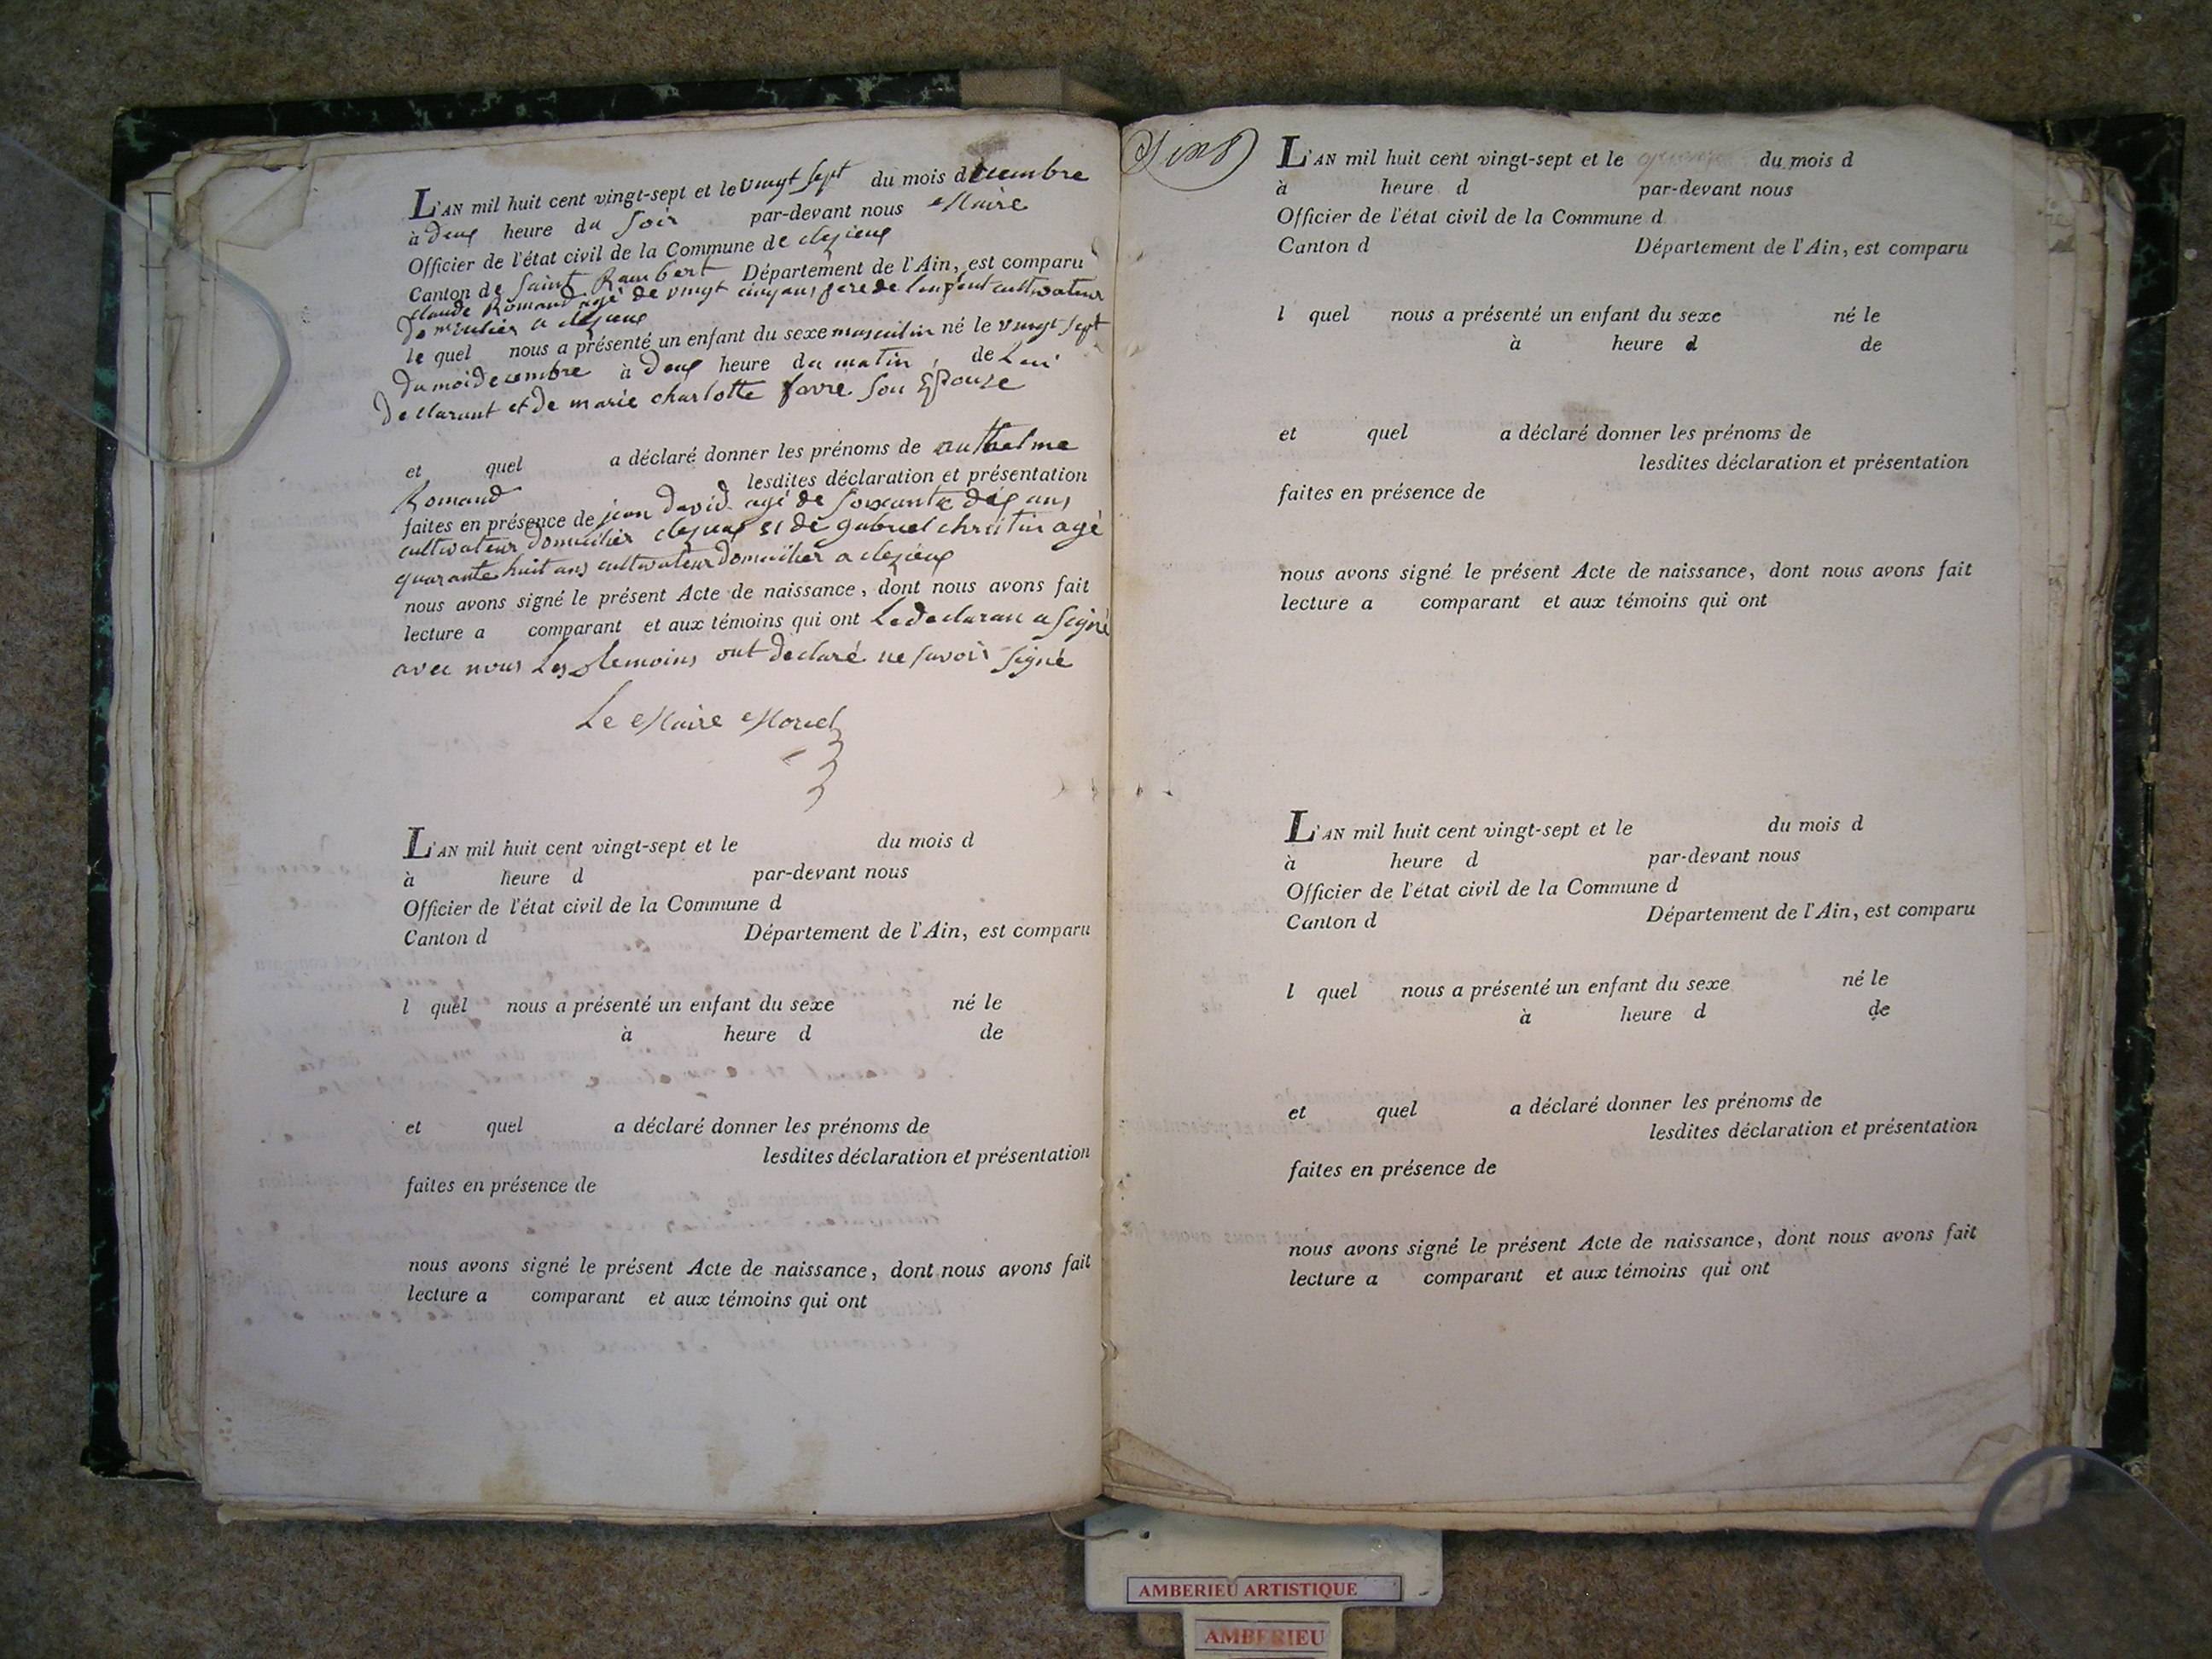 L'AN mil huit cent vingt-sept et le vingt sept du mois decembre
à deux heure du soir par-devant nous Maire
Officier de l'état civil de la Commune de clezieux
Canton de saint Rambert Département de l'Ain, est comparu
claude Romand agé de vingt cinq ans pere de lenfent cultivateur
domicilier a clezieux
le quel nous a présenté un enfant du sexe masculin né le vingt sept
du moi decembre à deux heure du matin, de Lui
declarant et de marie charlotte favre son Epouse
et quel a déclaré donner les prénoms de anthelme
Romand lesdites déclaration et présentation
faites en présence de jean david agé de soixante dix ans
cultivateur domicilier clezieux et de gabriel agé
quarante huit ans cultivateur domicilier a clezieux
nous avons signé le présent Acte de naissance, dont nous avons fait
lecture a comparant et aux témoins qui ont Le declaran a signé
avec nous Les temoins ont declaré ne savoir signé
Le Maire Morel
L'AN mil huit cent vingt-sept et le du mois d
à heure d par-devant nous
Officier de l'état civil de la Commune d
Canton d Département de l'Ain, est comparu
l quel nous a présenté un enfant du sexe né le
à heure d de
et quel a déclaré donner les prénoms de
lesdites déclaration et présentation
faites en présence de
nous avons signé le présent Acte de naissance, dont nous avons fait
lecture a comparant et aux témoins qui ont
L'AN mil huit cent vingt-sept et le du mois d
à heure d par-devant nous
Officier de l'état civil de la Commune d
Canton d Département de l'Ain, est comparu
l quel nous a présenté un enfant du sexe né le
à heure d de
et quel a déclaré donner les prénoms de
lesdites déclaration et présentation
faites en présence de
nous avons signé le présent Acte de naissance, dont nous avons fait
lecture a comparant et aux témoins qui ont
L'AN mil huit cent vingt-sept et le du mois d
à heure d par-devant nous
Officier de l'état civil de la Commune d
Canton d Département de l'Ain, est comparu
l quel nous a présenté un enfant du sexe né le
à heure d de
et quel a déclaré donner les prénoms de
lesdites déclaration et présentation
faites en présence de
nous avons signé le présent Acte de naissance, dont nous avons fait
lecture a comparant et aux témoins qui ont
AMBERIEU ARTISTIQUE
AMBERIEU